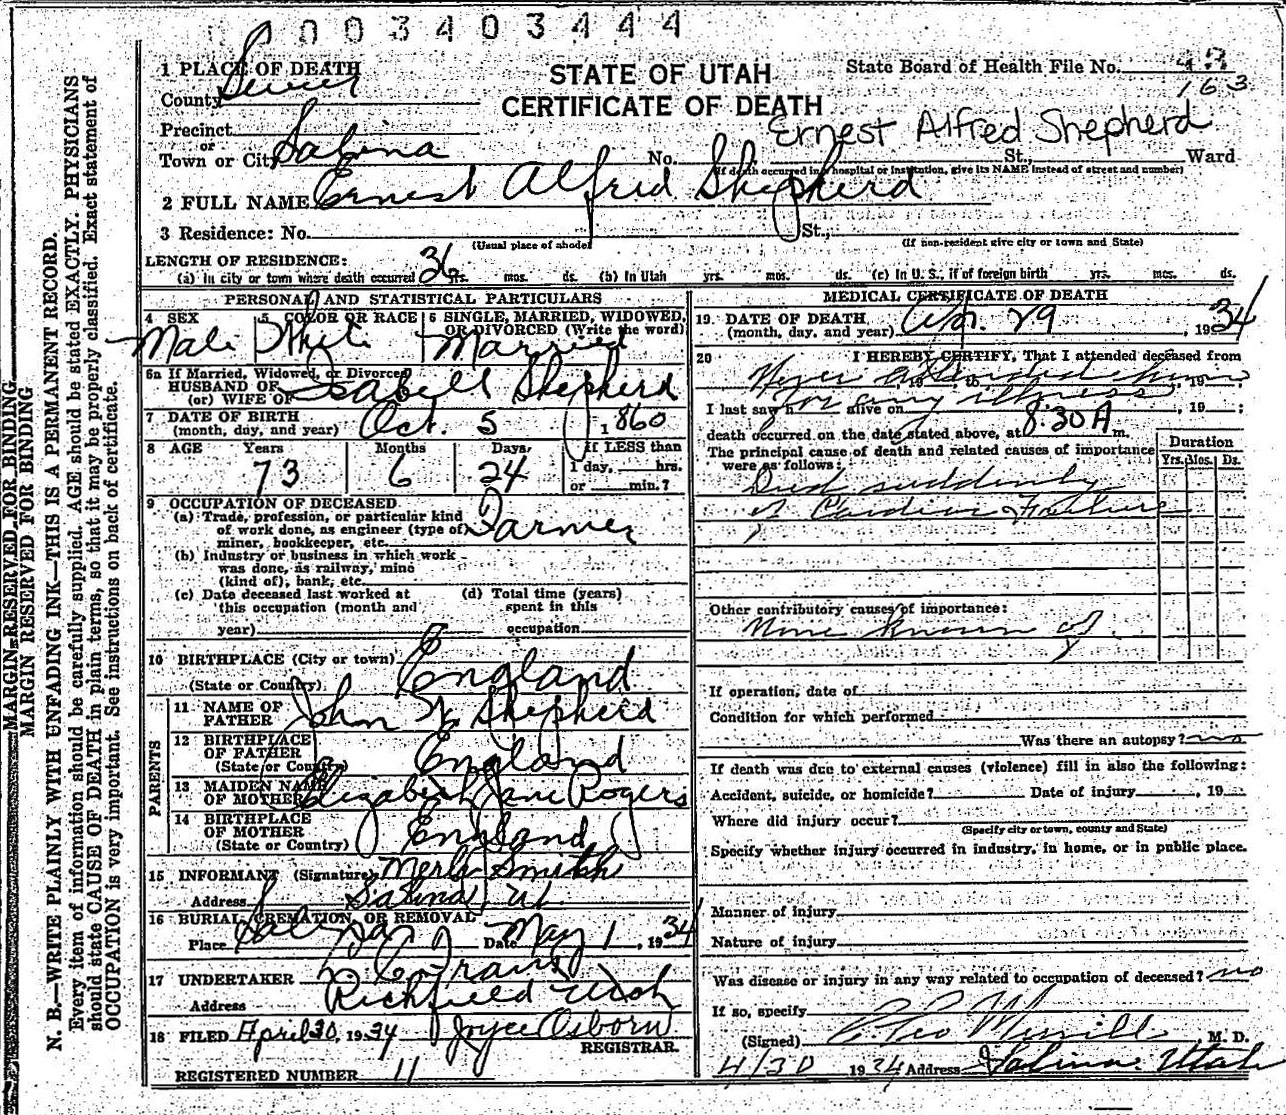 0003403444
1 PLACE OF DEATH
STATE OF UTAH
State Board of Health File No. 43
County Sevier
CERTIFICATE OF DEATH
163
Precinct
Ernest Alfred Shepherd
or
Town or City Salina No. St., Ward
(If death occurred in a hospital or institution, give its NAME instead of street and number)
2 FULL NAME Ernest Alfred Shepherd
3 Residence: No. St.,
(Usual place of abode) (If non-resident give city or town and State)
LENGTH OF RESIDENCE:
(a) In city or town where death occurred 36 yrs. mos. ds. (b) In Utah yrs. mos. ds. (c) In U. S., if of foreign birth yrs. mos. ds.
PERSONAL AND STATISTICAL PARTICULARS
4 SEX 5 COLOR OR RACE 6 SINGLE, MARRIED, WIDOWED, OR DIVORCED (Write the word)
Male White Married
6a If Married, Widowed, or Divorced
HUSBAND OF Isabell Shepherd
(or) WIFE OF
7 DATE OF BIRTH
(month, day, and year) Oct. 5 1860
8 AGE Years Months Days If LESS than
73 6 24 1 day, hrs.
or min.?
9 OCCUPATION OF DECEASED
(a) Trade, profession, or particular kind
of work done, as engineer (type of Farmer
miner, bookkeeper, etc.
(b) Industry or business in which work
was done, as railway, mine
(kind of), bank, etc.
(c) Date deceased last worked at (d) Total time (years)
this occupation (month and spent in this
year) occupation
10 BIRTHPLACE (City or town)
(State or Country) England
PARENTS
11 NAME OF
FATHER John W. Shepherd
12 BIRTHPLACE
OF FATHER England
(State or Country)
13 MAIDEN NAME
OF MOTHER Elizabeth Jane Rogers
14 BIRTHPLACE
OF MOTHER England
(State or Country)
15 INFORMANT (Signature) Merle Smith
Address Salina, Ut.
16 BURIAL, CREMATION, OR REMOVAL
Place Salina Date May 1, 1934
17 UNDERTAKER
Address Richfield Utah
18 FILED April 30, 1934 Joyce Osborn
REGISTRAR.
REGISTERED NUMBER 11
MEDICAL CERTIFICATE OF DEATH
19. DATE OF DEATH
(month, day, and year) Apr. 29, 1934
20 I HEREBY CERTIFY, That I attended deceased from
Never attended him, 19
for any illness
I last saw h alive on, 19 ;
death occurred on the date stated above, at 8:30 A m.
The principal cause of death and related causes of importance
were as follows:
Duration
Yrs. Mos. Ds.
Died suddenly
of Cardiac Failure
Other contributory causes of importance:
None known of
If operation, date of
Condition for which performed
Was there an autopsy? no
If death was due to external causes (violence) fill in also the following:
Accident, suicide, or homicide? Date of injury, 19
Where did injury occur?
(Specify city or town, county and State)
Specify whether injury occurred in industry, in home, or in public place.
Manner of injury
Nature of injury
Was disease or injury in any way related to occupation of deceased? no
If so, specify
(Signed) Merrill M. D.
4/30 1934 Address Salina, Utah
MARGIN RESERVED FOR BINDING
MARGIN RESERVED FOR BINDING
N. B.—WRITE PLAINLY WITH UNFADING INK—THIS IS A PERMANENT RECORD.
Every item of information should be carefully supplied. AGE should be stated EXACTLY. PHYSICIANS
should state CAUSE OF DEATH in plain terms, so that it may be properly classified. Exact statement of
OCCUPATION is very important. See instructions on back of certificate.